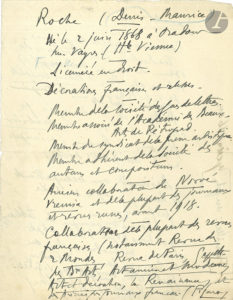 Roche (Denis - Maurice)
Né le 2 juin 1868 à Oradour
sur Vayres (Hte Vienne)
Licencié en droit.
Décorations françaises et russes.
Membre de la Société des gens de lettres
Membre associé de l'Académie des Beaux-
Arts de Pétersbg.
Membre du syndicat de la presse artistique
Membre adhérent de la Société des
auteurs et compositeurs.
Ancien collaborateur du Novoe
Vremia et de la plupart des journaux
et revues russes, avant 1918.
Collaborateur des plupart des revues
françaises (notamment Revue des
2 Mondes, Revue de Paris, Gazette
des Bx Arts, Art ancien et moderne,
Art et décoration, la Renaissance, et
journaux français